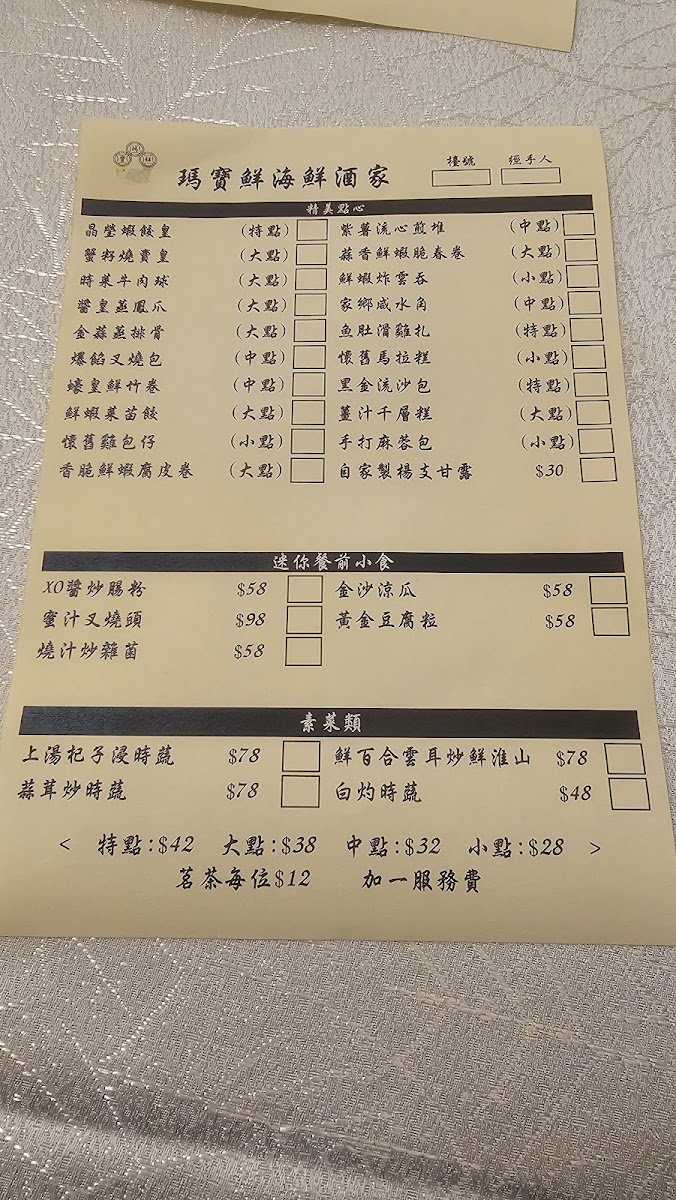 瑪寶鮮海鮮酒家
檯號 經手人
精美點心
晶瑩蝦餃皇 (特點) 紫薯流心煎堆 (中點)
蟹籽燒賣皇 (大點) 蒜香鮮蝦脆春卷 (大點)
時菜牛肉球 (大點) 鮮蝦炸雲吞 (小點)
醬皇蒸鳳爪 (大點) 家鄉咸水角 (中點)
金蒜蒸排骨 (大點) 魚肚滑雞扎 (特點)
爆餡叉燒包 (中點) 懷舊馬拉糕 (小點)
蠔皇鮮竹卷 (中點) 黑金流沙包 (特點)
鮮蝦菜苗餃 (大點) 薑汁千層糕 (大點)
懷舊雞包仔 (小點) 手打麻蓉包 (小點)
香脆鮮蝦腐皮卷 (大點) 自家製楊支甘露 $30
迷你餐前小食
XO醬炒腸粉 $58 金沙涼瓜 $58
蜜汁叉燒頭 $98 黃金豆腐粒 $58
燒汁炒雜菌 $58
素菜類
上湯杞子浸時蔬 $78 鮮百合雲耳炒鮮淮山 $78
蒜茸炒時蔬 $78 白灼時蔬 $48
< 特點:$42 大點:$38 中點:$32 小點:$28 >
茗茶每位$12 加一服務費